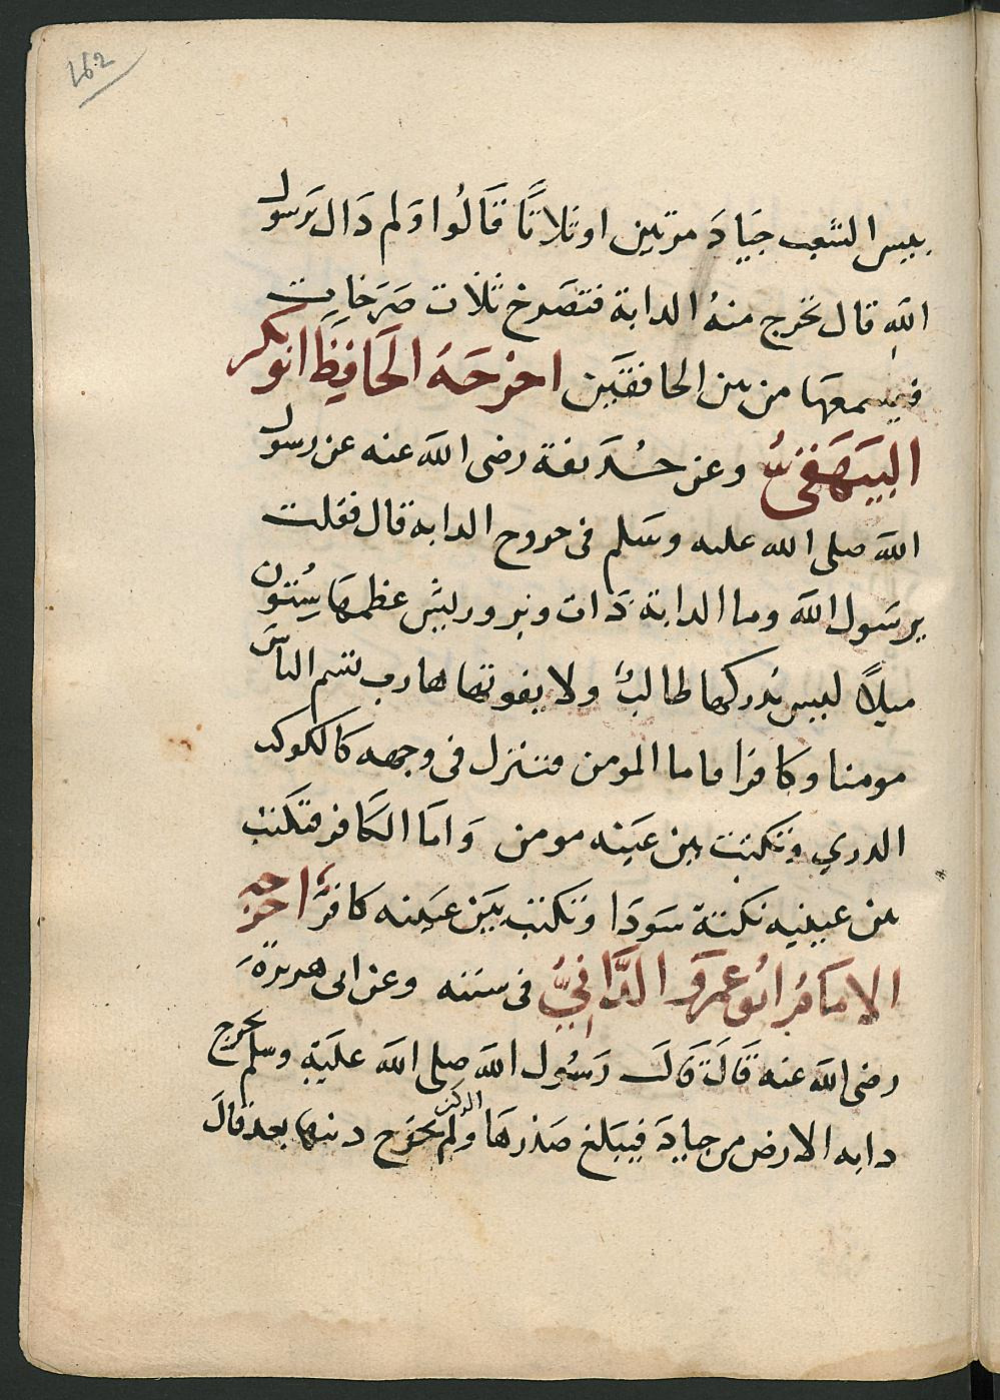 162
بييس الشعب جياد مرتين او ثلاثا قالوا ولم دال يرسول
الله قال تخرج منه الدابة فتصرخ ثلاث صرخات
فيسمعها من بين الخافقين اخرجه الحافظ ابو بكر
البيهقي وعن حذيفة رضى الله عنه عن رسول
الله صلى الله عليه وسلم فى خروج الدابة قال فقلت
يرسول الله وما الدابة ذات وبر وريش عظمها ستون
ميلا ليس يدركها طالب ولا يفوتها هارب تسم الناس
مومنا وكافرا فاما المومن فتنزل فى وجهه كالكوكب
الدري وتكتب بين عينه مومن واما الكافر فتكتب
بين عينيه نكتة سودا وتكتب بين عينه كافر اخرجه
الامام ابو عمرو الداني فى سننه وعن ابى هريرة
رضى الله عنه قال قال رسول الله صلى الله عليه وسلم تخرج
دابه الارض من جياد فيبلغ صدرها الركن ولم تخرج دنبها بعد قال